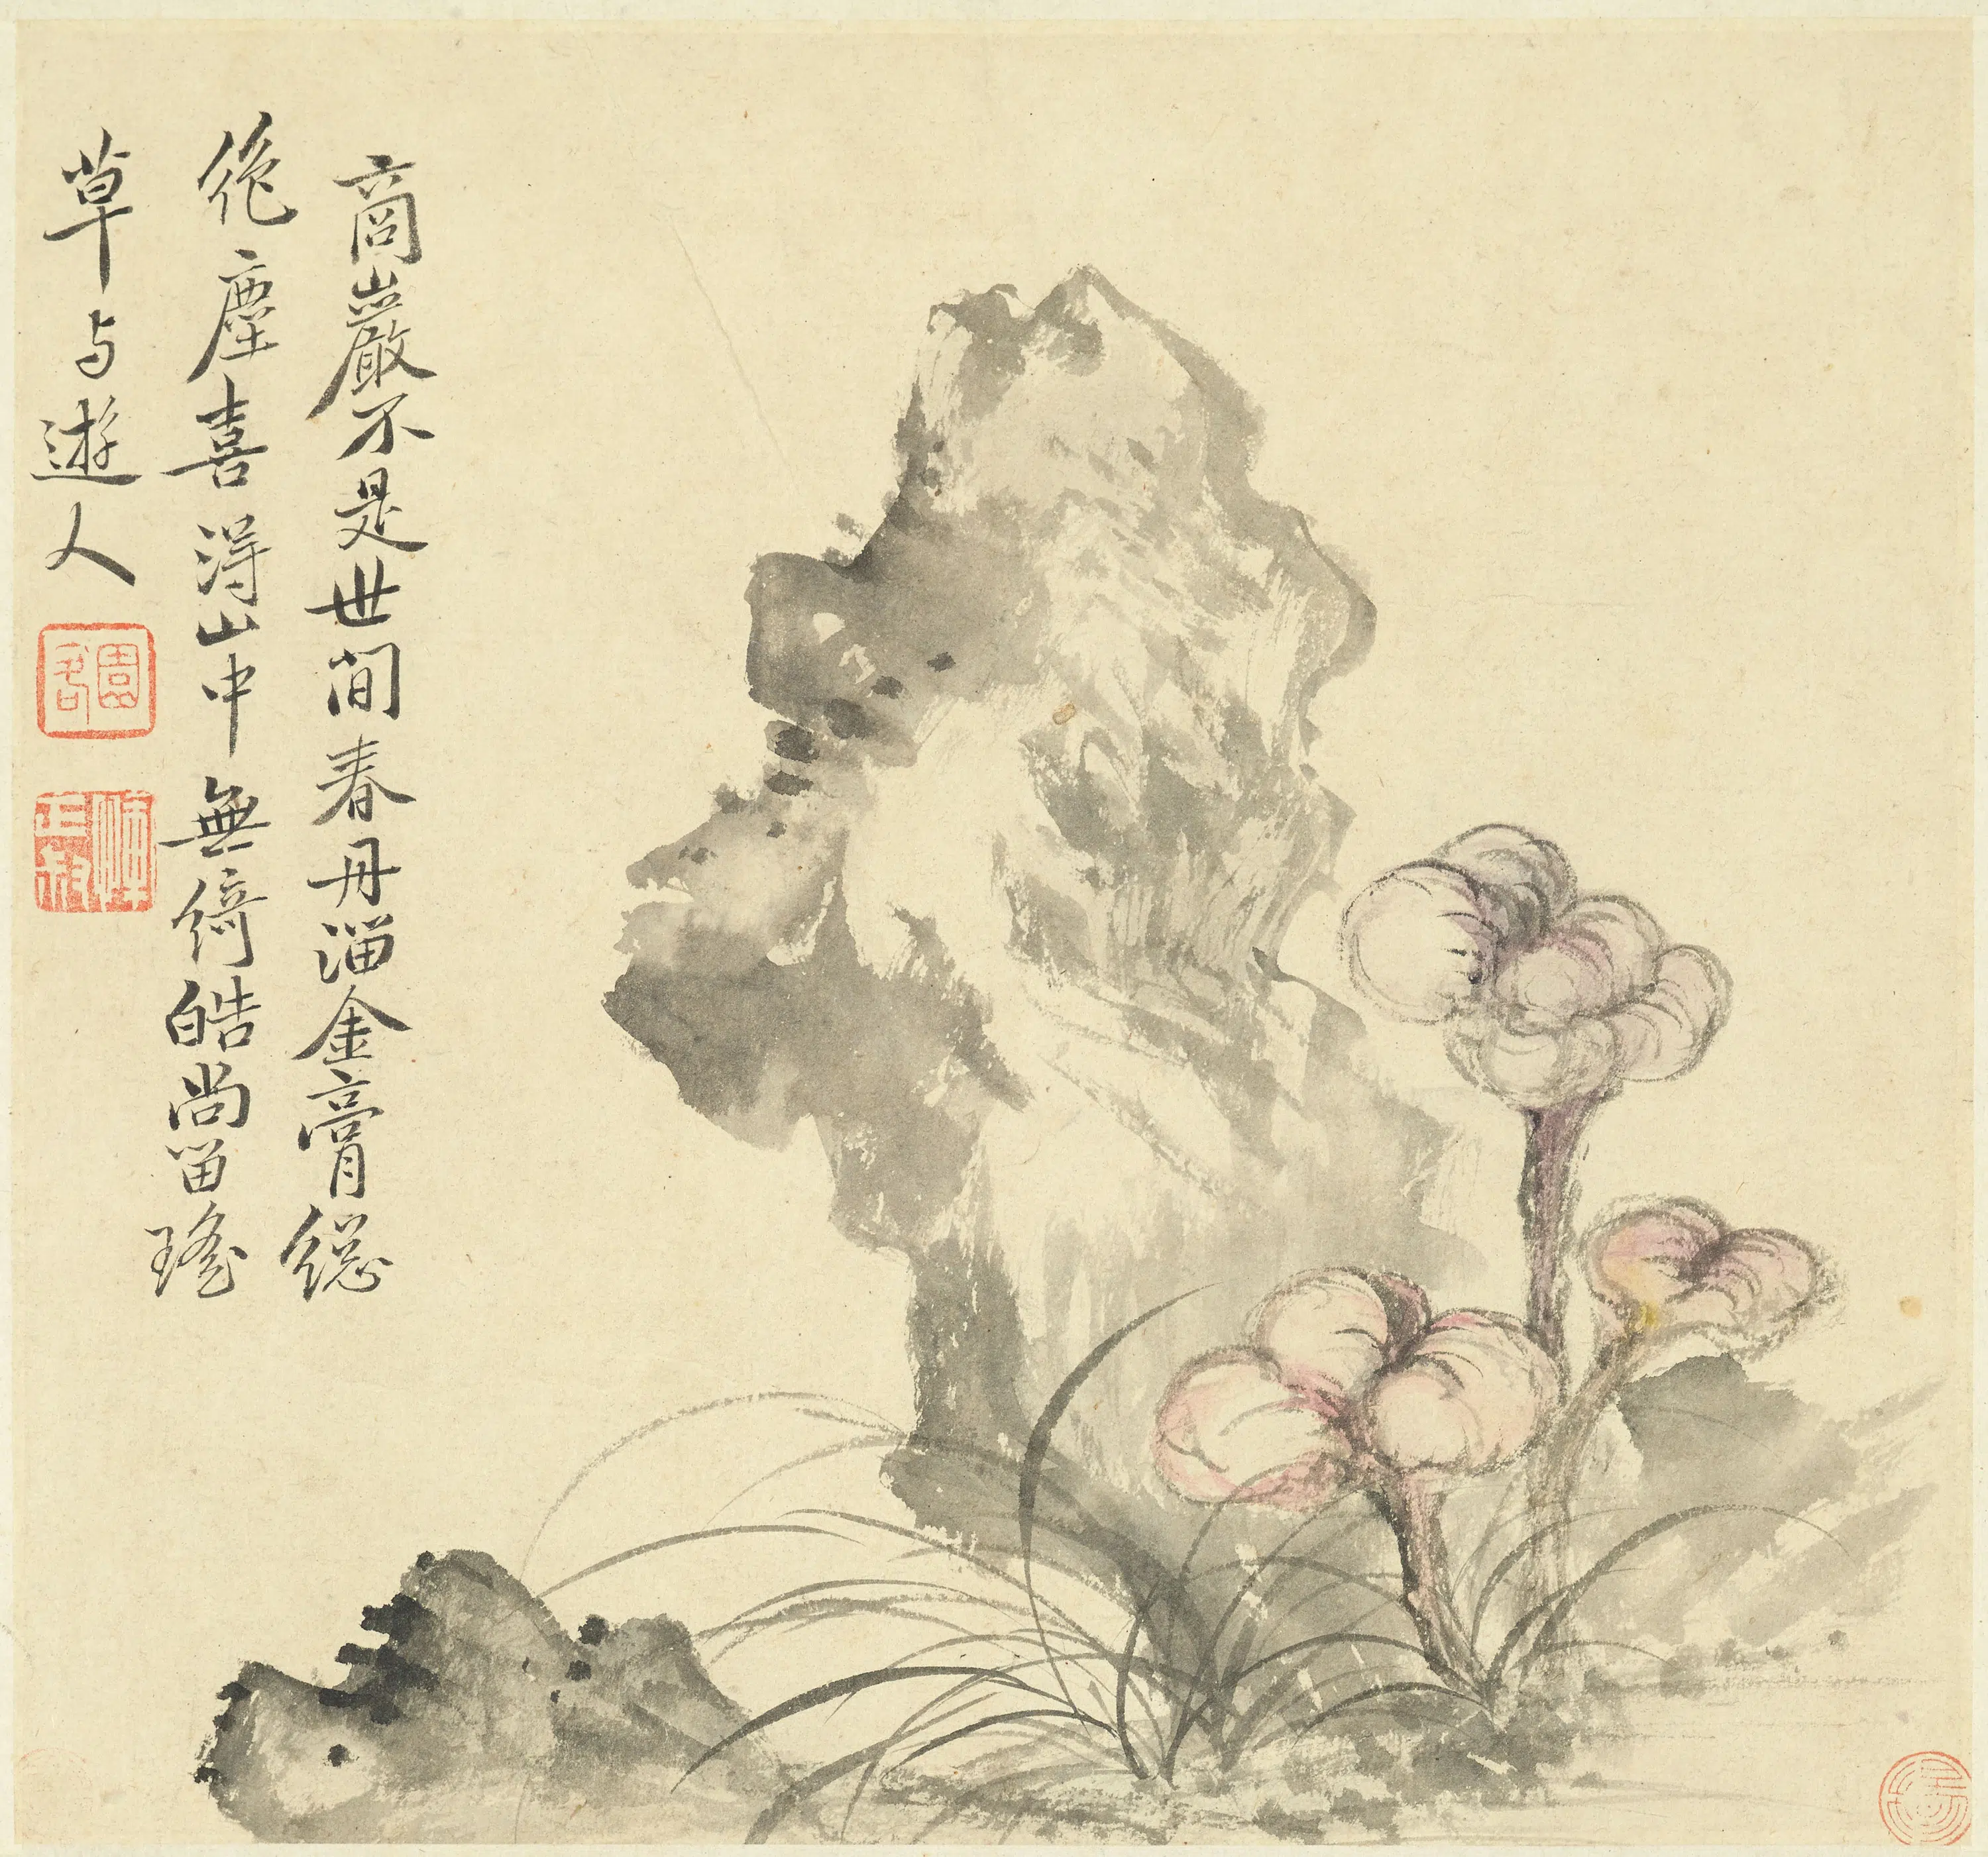 商巖不是世间春丹溜金膏總
絶塵喜得山中無綺皓尚留瑤
草与遊人
園客